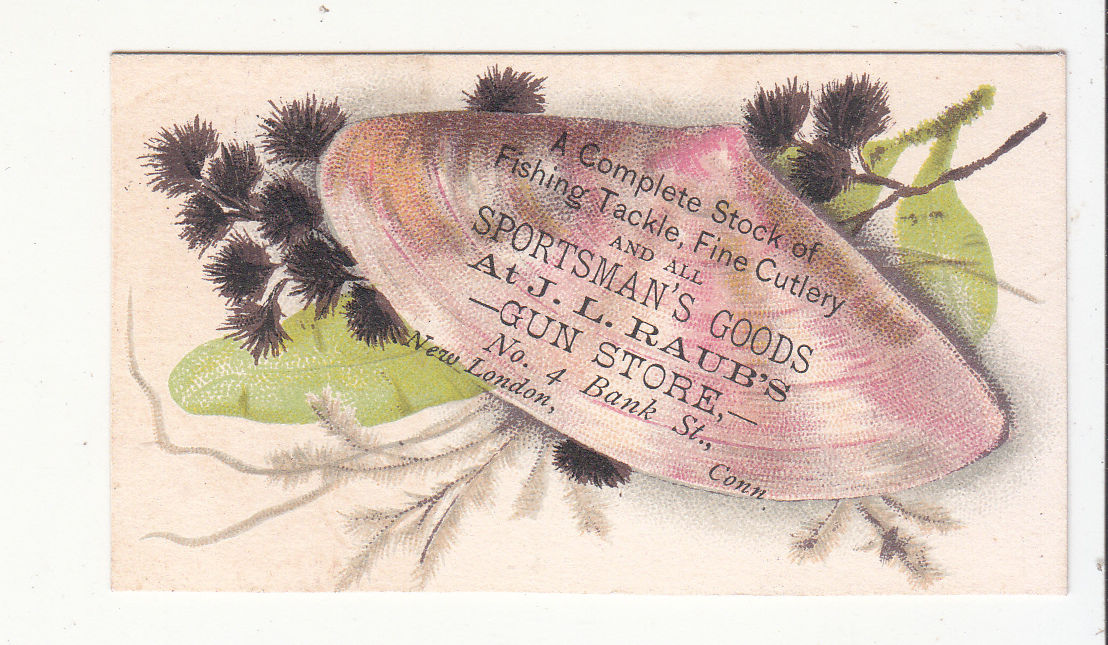 A Complete Stock of
Fishing Tackle, Fine Cutlery
AND ALL
SPORTSMAN'S GOODS
At J. L. RAUB'S
—GUN STORE,—
No. 4 Bank St.,
New London, Conn